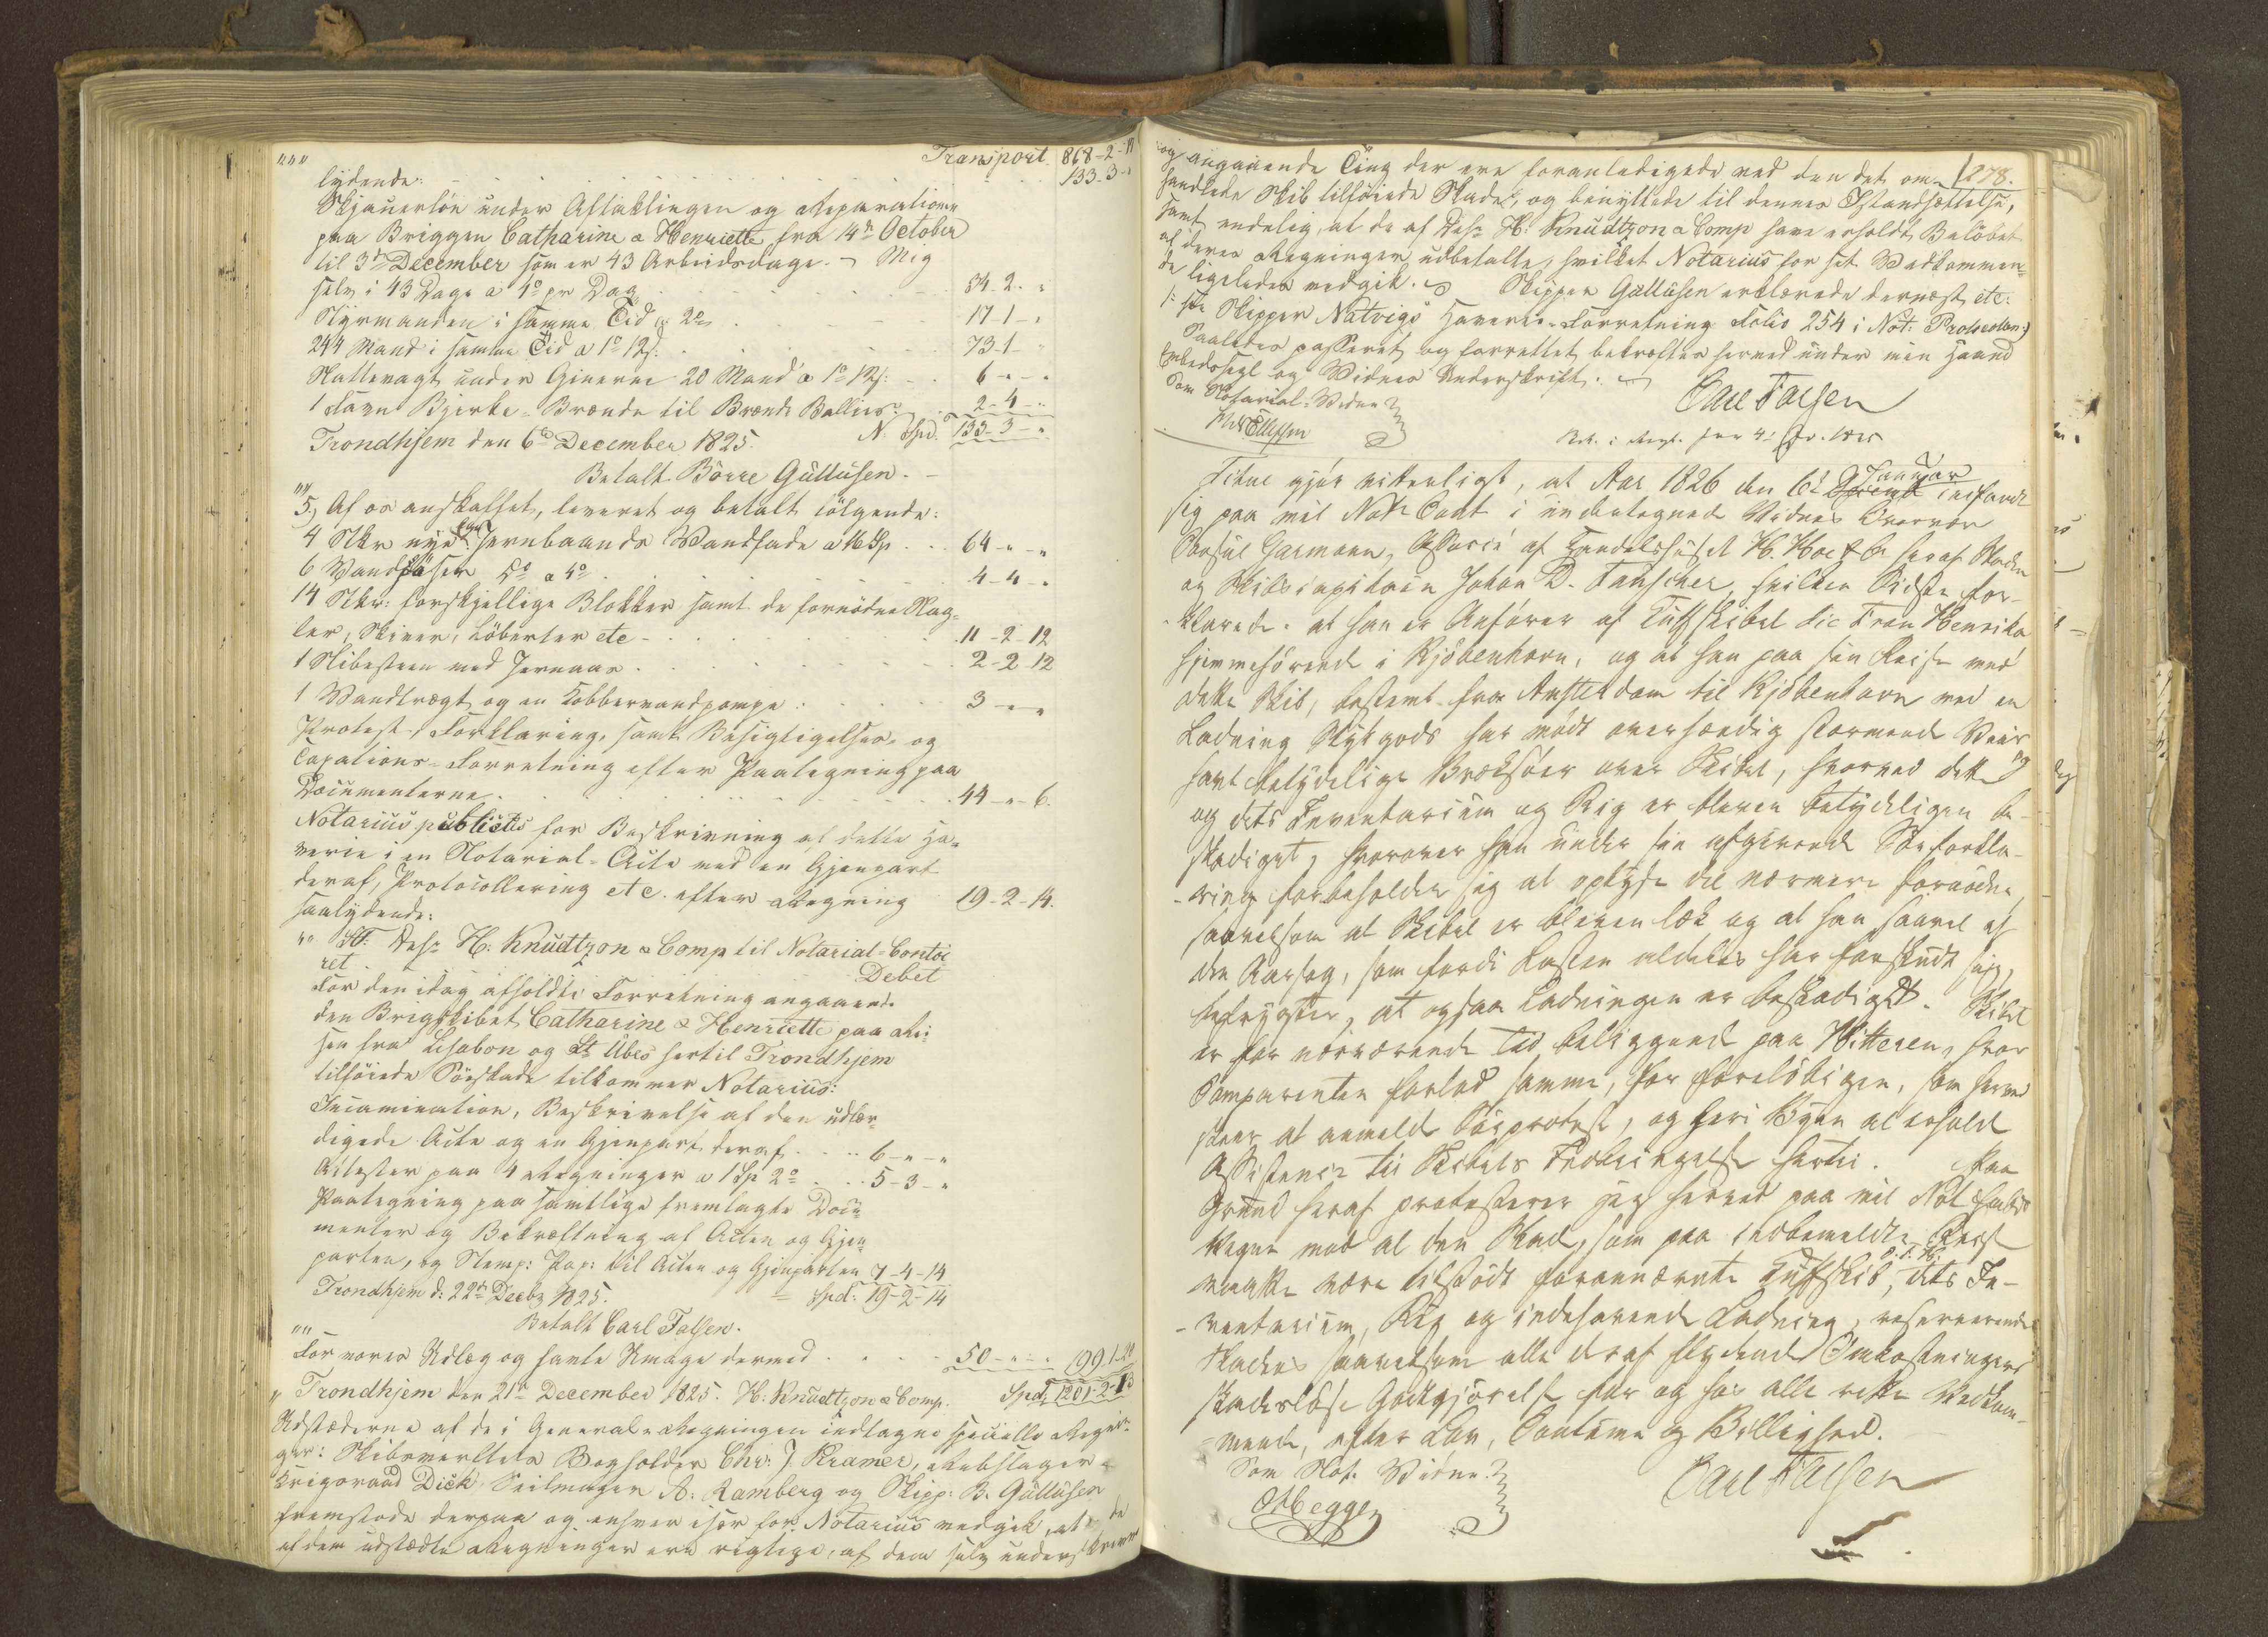 "," Transport 868-2-11
lydende: 133-3-"
Skjauerløn under Aftaklingen og Reparationen
paa Briggen Catharine & Henriette fra 14de October
til 3de December som er 43 Arbeidsdage. - Mig
selv i 43 Dage a 4o pr Dag 34-2-"
Styrmanden i samme Tid a 2o 17-1-"
244 Mand i samme Tid a 1o 12s: 73-1-"
Nattevagt under 20 Mand a 1o 12s: 6-"-"
1 Favn Bjerke-Brænde til Brænde 2-4-"
Trondhjem den 6te December 1825. N: Spd. 133-3-"
Betalt Börre Güllüsen.
5, Af os anskaffet, leveret og betalt følgende:
4 Stkr nye Jernbaands Vandfade a 16 Sp 64-"-"
6 Vand a 4o 4-4-"
14 Stkr: forskjellige Blokker samt de fornödne Nag-
ler, Skiver, Löberter etc 11-2-12
1 Slibesteen med Jernaas 2-2-12
1 Vandtragt og en Kobbervandpompe 3-"-"
Protest, Forklaring, samt Besigtigelses- og
Taxations-Forretning efter Paategning paa
Documenterne 44-"-6.
Notarius publicus for Beskrivning af dette Ha-
verie i en Notarial-Acte med en Gjenpart
deraf, Protocollering etc. efter Regning 19-2-14.
saalydende:
"" St: Dhrr H: Knudtzon & Comp til Notarial-Contoi
ret Debet
For den idag afholdte Forretning angaaende
den Brigskibet Catharine & Henriette paa Rei-
sen fra Lisabon og St Übes hertil Trondhjem
tilføiede Söeskade tilkommer Notarius:
Examination, Beskrivelse af den udfær-
digede Acte og en Gjenpart deraf 6-"-"
Attester paa 4 Regninger a 1 Sp 2o 5-3-"
Paategning paa samtlige fremlagte Docu-
menter og Bekræftning af Acten og Gjen-
parten, og Stemp: Pap: til Acten og Gjenparten 7-4-14
Trondhjem d: 22de Decbr 1825. Spd: 19-2-14
Betalt Carl Falsen.
""
For vores Udlæg og havte Umage dermed 50-"-" 199.1.
" Trondhjem den 21de December 1825. H: Knudtzon & Comp. Spd. 1201-2-13
Udstæderne af de i General-Regningen indtagne specielle Regnin-
ger: Skibsverftets Bogholder Chr: J. Kramer, Rebslager
Krigsraad Dick, Seilmager A: Ramberg og Skipp: B. Güllüsen
fremstode derpaa og enhver især for Notarius vedgik, at de
af dem udstædte Regninger ere rigtige, af dem selv underskrevne
278.
og angaaende Ting der ere foranledigede ved den det om-
handlede Skib tilføiede Skade, og benyttede til dennes Istandsættelse,
samt endelig, at de af Dhrr H: Knudtzon & Comp have erholdt Beløbet
af deres Regninger udbetalte, hvilket Notarius for sit Vedkommen-
de ligeledes vedgik. Skipper Güllüsen erklærede dernæst etc:
/: see Skipper Natvigs Haverie-Forretning Folio 254 i Not: Protocolen:/
Saaledes passeret og forrettet bekræftes herved under min Haand
Embedssegl og Vidnes Underskrift.
Som Notarial-Vidne Carl Falsen
Ellefsen
Titul gjør vitterligt, at Aar 1826 den 6te Januar indfandt
sig paa mit Not: Cont i undertegnede Vidnes Overvær
Consul Garmann, Associé af Handelshuset H. Hoe & Co heraf Staden
og Skibscapitain Johan D. Fanscher, hvilken Sidste for-
klarede: at han er Anfører af Tufskibet die Frau Henrika
hjemmehörende i Kjöbenhavn, og at han paa sin Reise med
dette Skib, bestemt fra Amsterdam til Kjöbenhavn med en
Ladning Stykgods har mødt overhændig stormende Veir
samt betydelige Braksöer over Skibet, hvorved dette
og dets Inventarium og Rig er bleven betydeligen be-
skadiget, hvorover han under sin afgivende Söeforkla-
ring forbeholder sig at oplyse det nærmere fornødne,
saavelsom at Skibet er bleven læk og at han saavel af
den Aarsag, som fordi Lasten aldeles har forskudt sig,
befrygter, at ogsaa Ladningen er beskadiget. Skibet
er for nærværende Tid beliggende paa Hitteren, hvor
Comparenten forlod samme, for foreløbigen, som herved
skeer at anmelde Söeprotest, og heri Byen at erholde
Assistence til Skibets Indbringelse hertil. Paa
Grund heraf protesterer jeg herved paa mit Not Embeds
Vegne mod al den Skade, som paa indbemeldte Reise
maatte være tilstødt forannævnte Tufskib, dets In-
ventarium, Rig og indehavende Ladning, reserverende
Skadens saavelsom alle deraf flydende Omkostningers
skadesløse Godtgjörelse for og hos alle rette Vedkom-
mende, efter Lov, Coutume og Billighed.
Som Not: Vidne. Carl Falsen